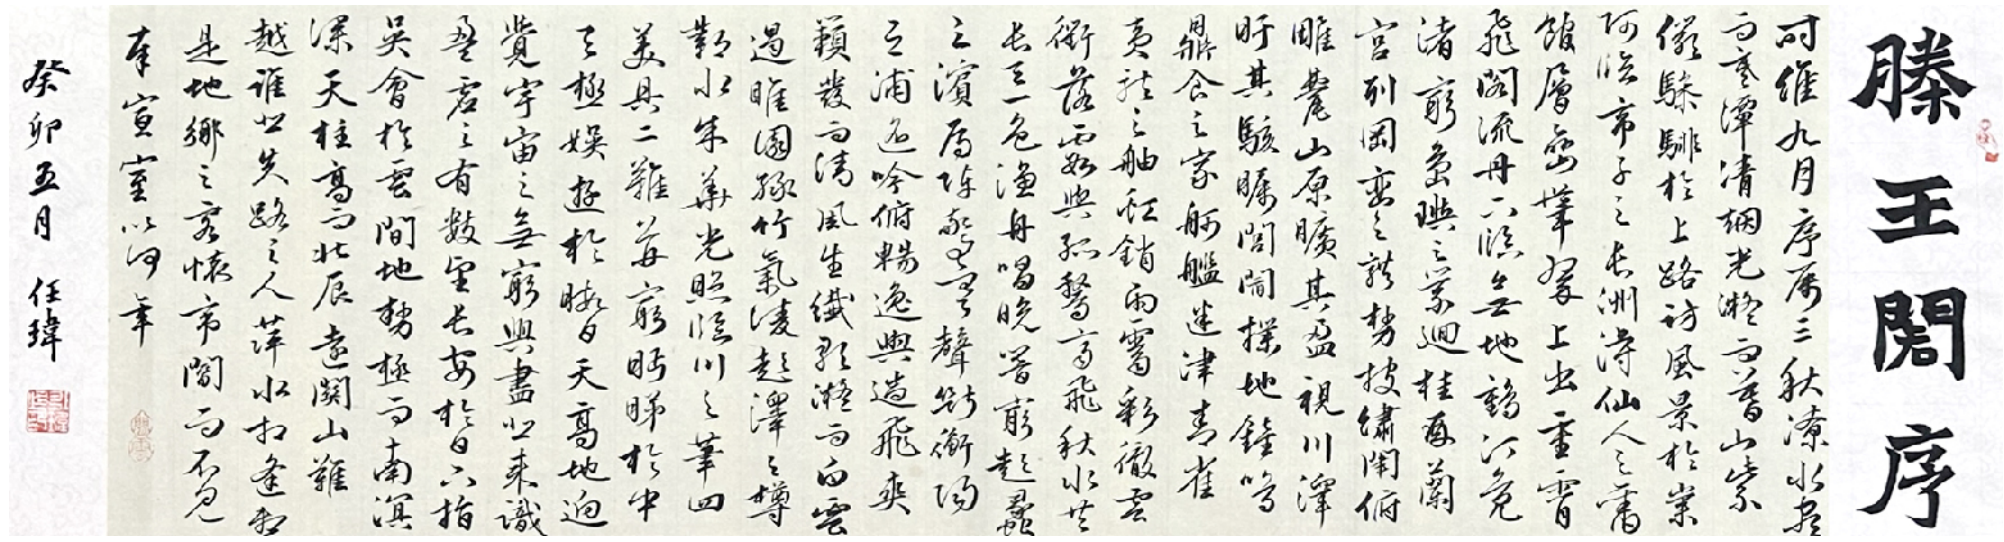 滕王閣序
時維九月序屬三秋潦水盡
而寒潭清煙光凝而暮山紫
儼驂騑於上路訪風景於崇
阿臨帝子之長洲得仙人之舊
館層巒聳翠上出重霄
飛閣流丹下臨無地鶴汀鳧
渚窮島嶼之縈迴桂殿蘭
宮列岡巒之體勢披繡闥俯
雕甍山原曠其盈視川澤
盱其駭矚閭閻撲地鐘鳴
鼎食之家舸艦迷津青雀
黃龍之舳虹銷雨霽彩徹雲
衢落霞與孤鶩齊飛秋水共
長天一色漁舟唱晚響窮彭蠡
之濱雁陣驚寒聲斷衡陽
之浦遙吟俯暢逸興遄飛爽
籟發而清風生纖歌凝而白雲
遏睢園綠竹氣凌彭澤之樽
鄴水朱華光照臨川之筆四
美具二難并窮眄睇於中
天極娛遊於暇日天高地迥
覺宇宙之無窮興盡悲來識
盈虛之有數望長安於日下指
吳會於雲間地勢極而南溟
深天柱高而北辰遠關山難
越誰悲失路之人萍水相逢盡
是他鄉之客懷帝閽而不見
奉宣室以何年
癸卯五月 任瑋